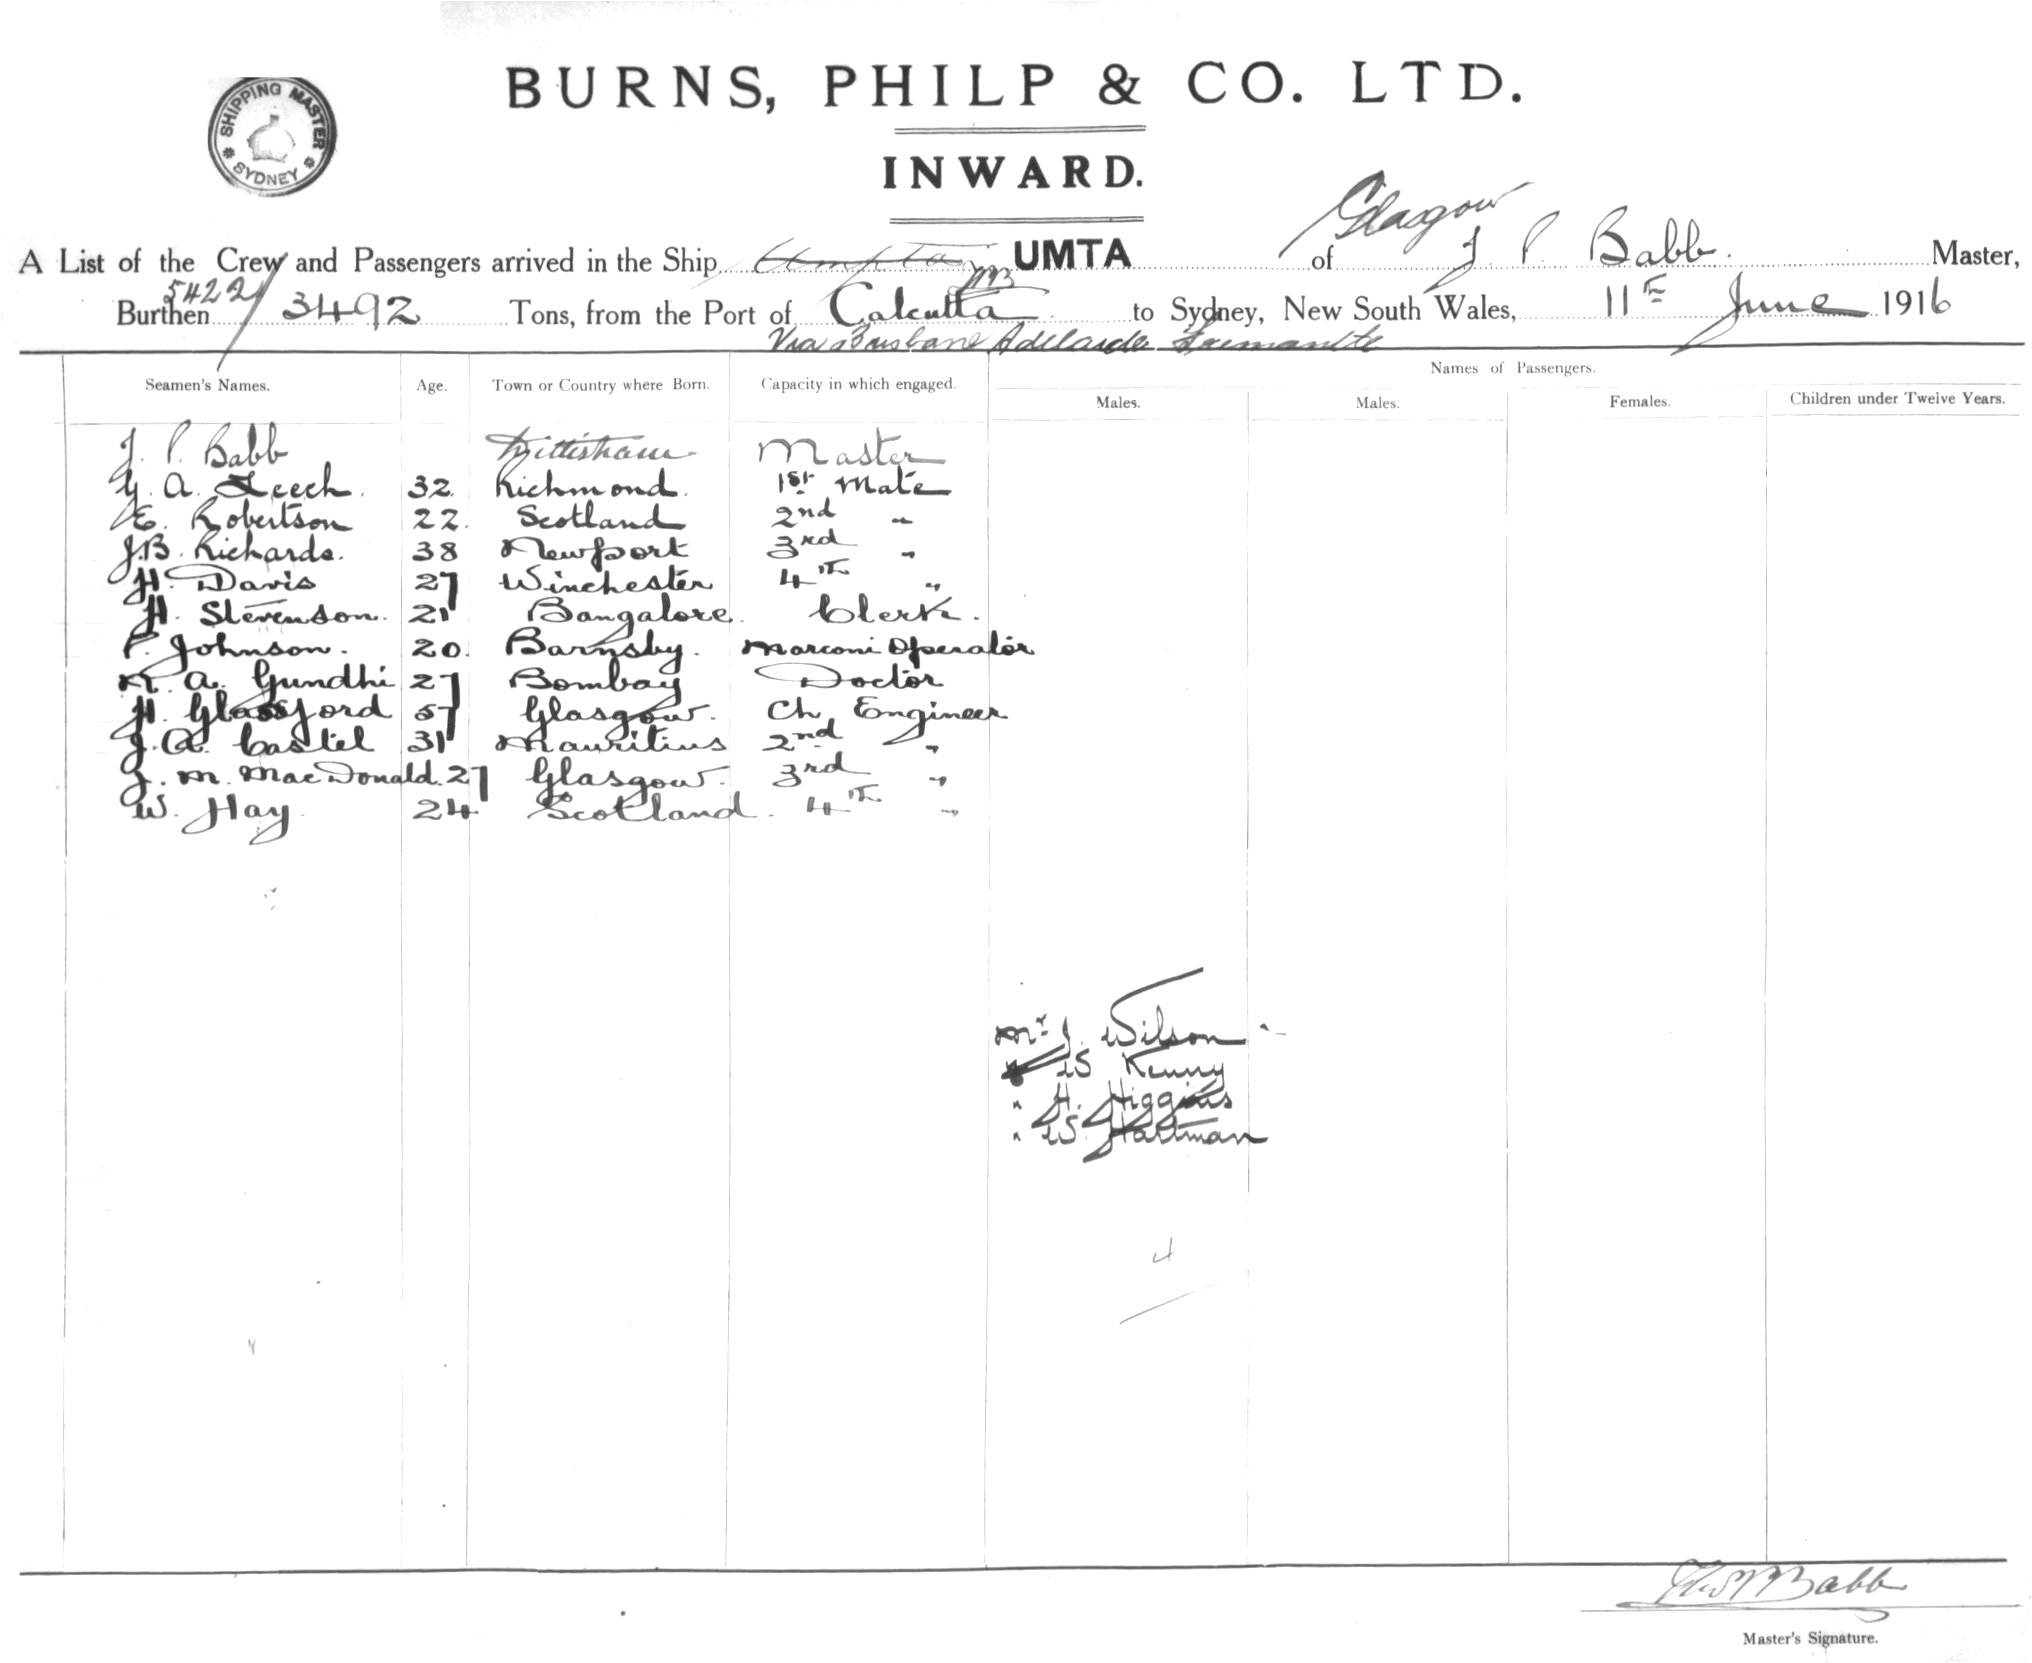 BURNS, PHILP & CO. LTD.
SHIPPING MASTER
SYDNEY
INWARD.
A List of the Crew and Passengers arrived in the Ship UMTA of Glasgow J P. Babb. Master,
Burthen 5422/3492 Tons, from the Port of Calcutta to Sydney, New South Wales, 11th June 1916
Via Brisbane Adelaide Fremantle
Seamen's Names. Age. Town or Country where Born. Capacity in which engaged. Names of Passengers.
Males. Males. Females. Children under Twelve Years.
J. P. Babb Dittisham Master
G. A. Leech. 32. Richmond. 1st Mate
E. Robertson 22. Scotland 2nd "
J.B. Richards. 38 Newport 3rd "
H. Davis 27 Winchester 4th "
H. Stevenson. 21 Bangalore. Clerk.
P. Johnson. 20. Barnsby. Marconi Operator
K. A. Gundhi 27 Bombay Doctor
H. Glassford 57 Glasgow. Ch Engineer
J. A. Castel 31 Mauritius 2nd "
J. M. MacDonald. 27 Glasgow. 3rd "
W. Hay 24 Scotland. 4th "
Mr J. Wilson
" W Kenny
" H. Higgins
" W. Hartman
4
Babb
Master's Signature.